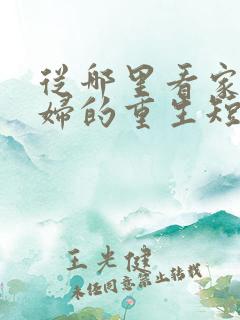 從哪里看家
婦的重生短
王光健
未經同意禁止轉載